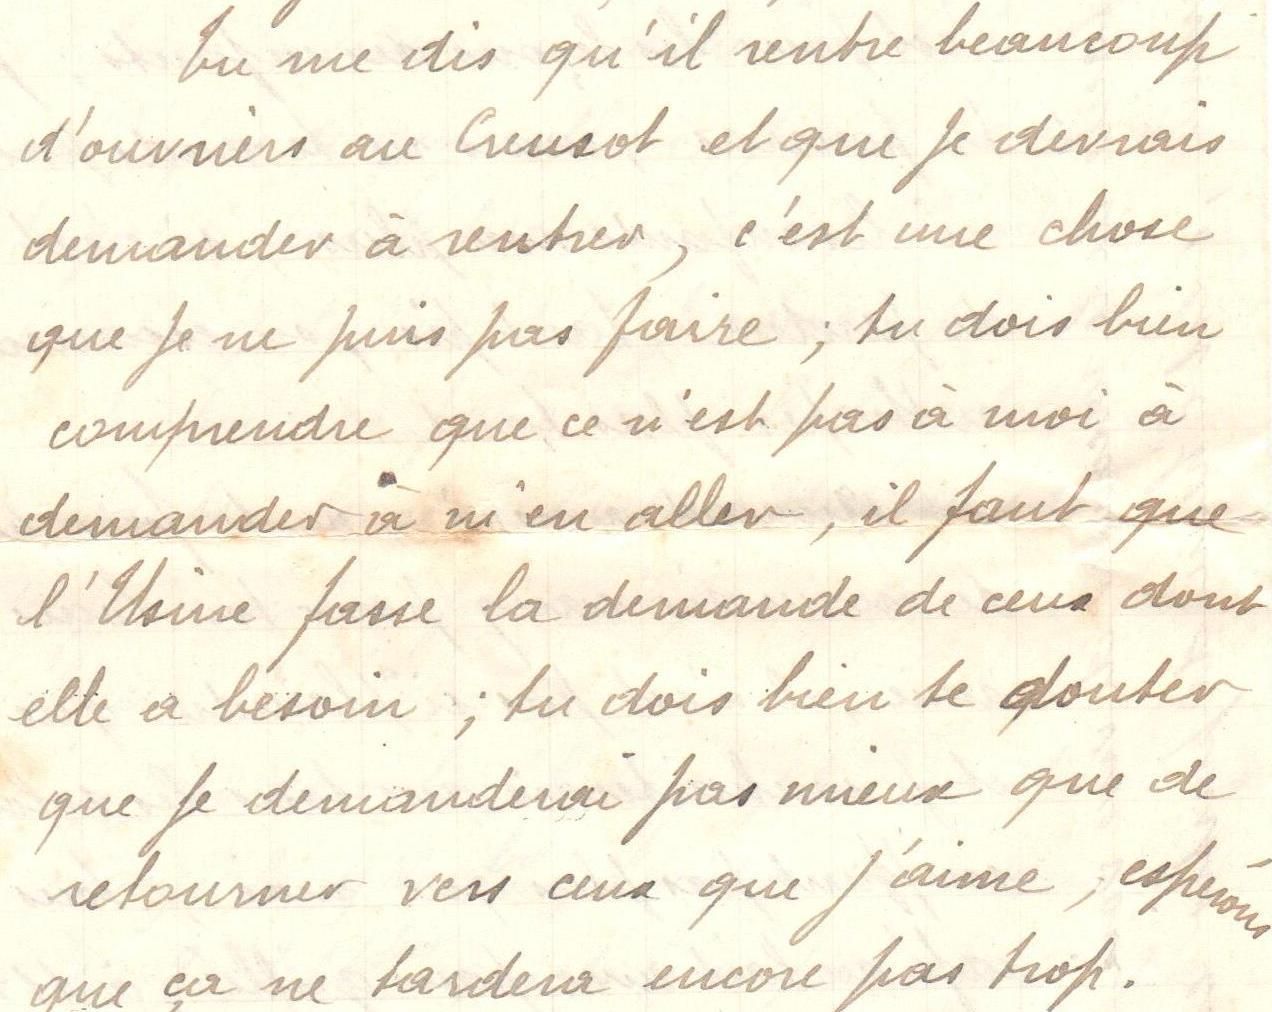 tu me dis qu'il rentre beaucoup
d'ouvriers au Creusot et que Je devrais
demander à rentrer, c'est une chose
que Je ne puis pas faire ; tu dois bien
comprendre que ce n'est pas à moi à
demander à m'en aller, il faut que
l'Usine fasse la demande de ceux dont
elle a besoin ; tu dois bien te douter
que Je demanderai pas mieux que de
retourner vers ceux que j'aime, espérons
que ça ne tardera encore pas trop.